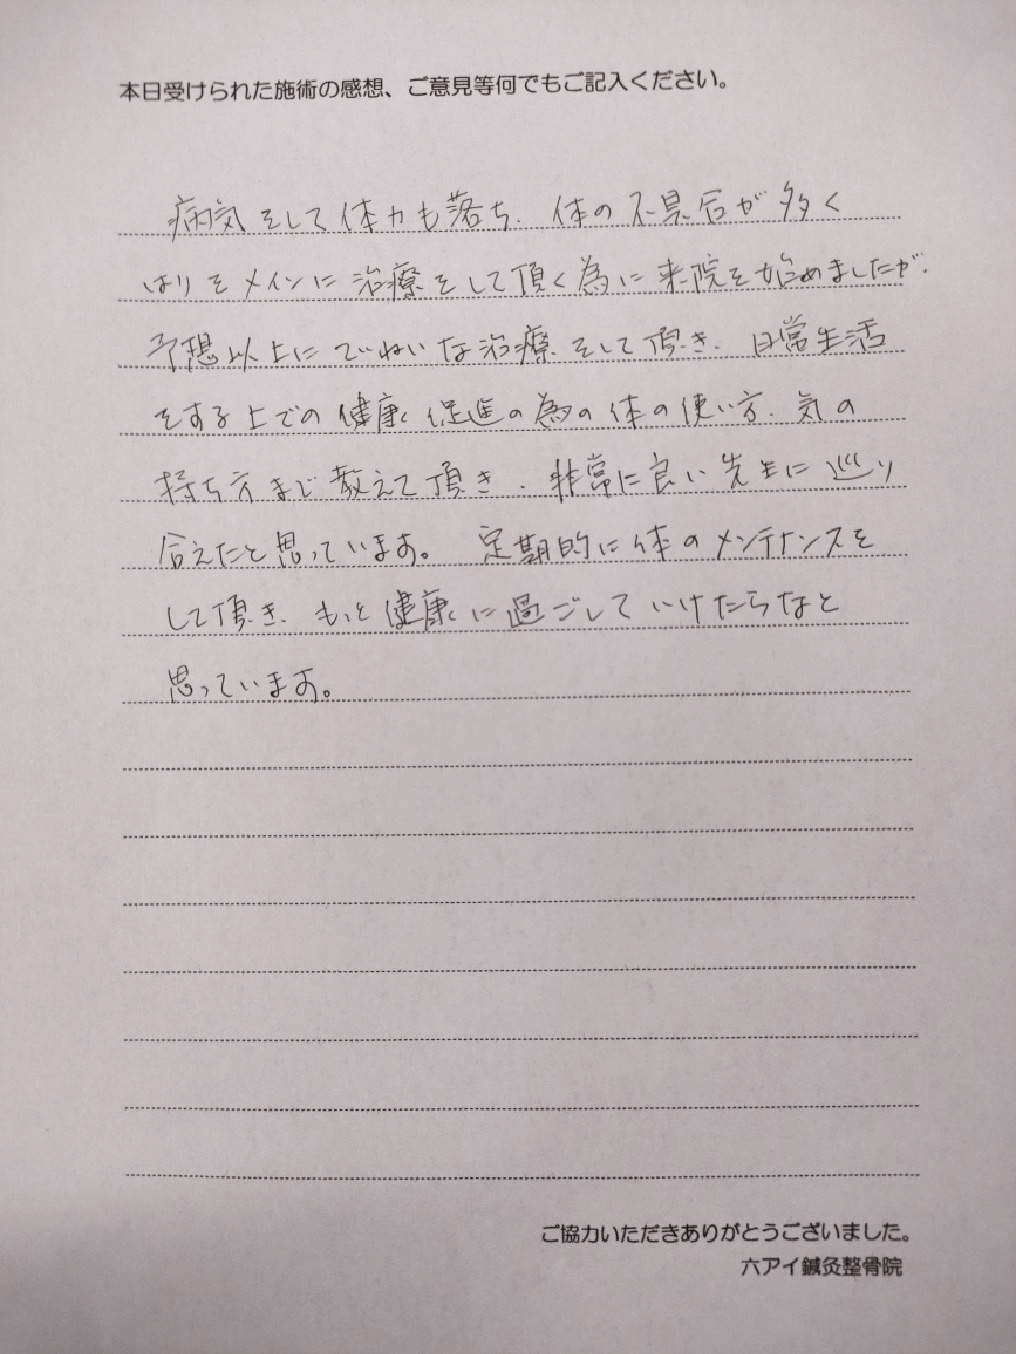 本日受けられた施術の感想、ご意見等何でもご記入ください。
病気をして体力も落ち、体の不具合が多く
はりをメインに治療をして頂く為に来院を始めましたが、
予想以上にていねいな治療をして頂き、日常生活
をする上での健康促進の為の体の使い方、気の
持ち方まで教えて頂き、非常に良い先生に巡り
合えたと思っています。 定期的に体のメンテナンスを
して頂き、もっと健康に過ごしていけたらなと
思っています。
ご協力いただきありがとうございました。
六アイ鍼灸整骨院